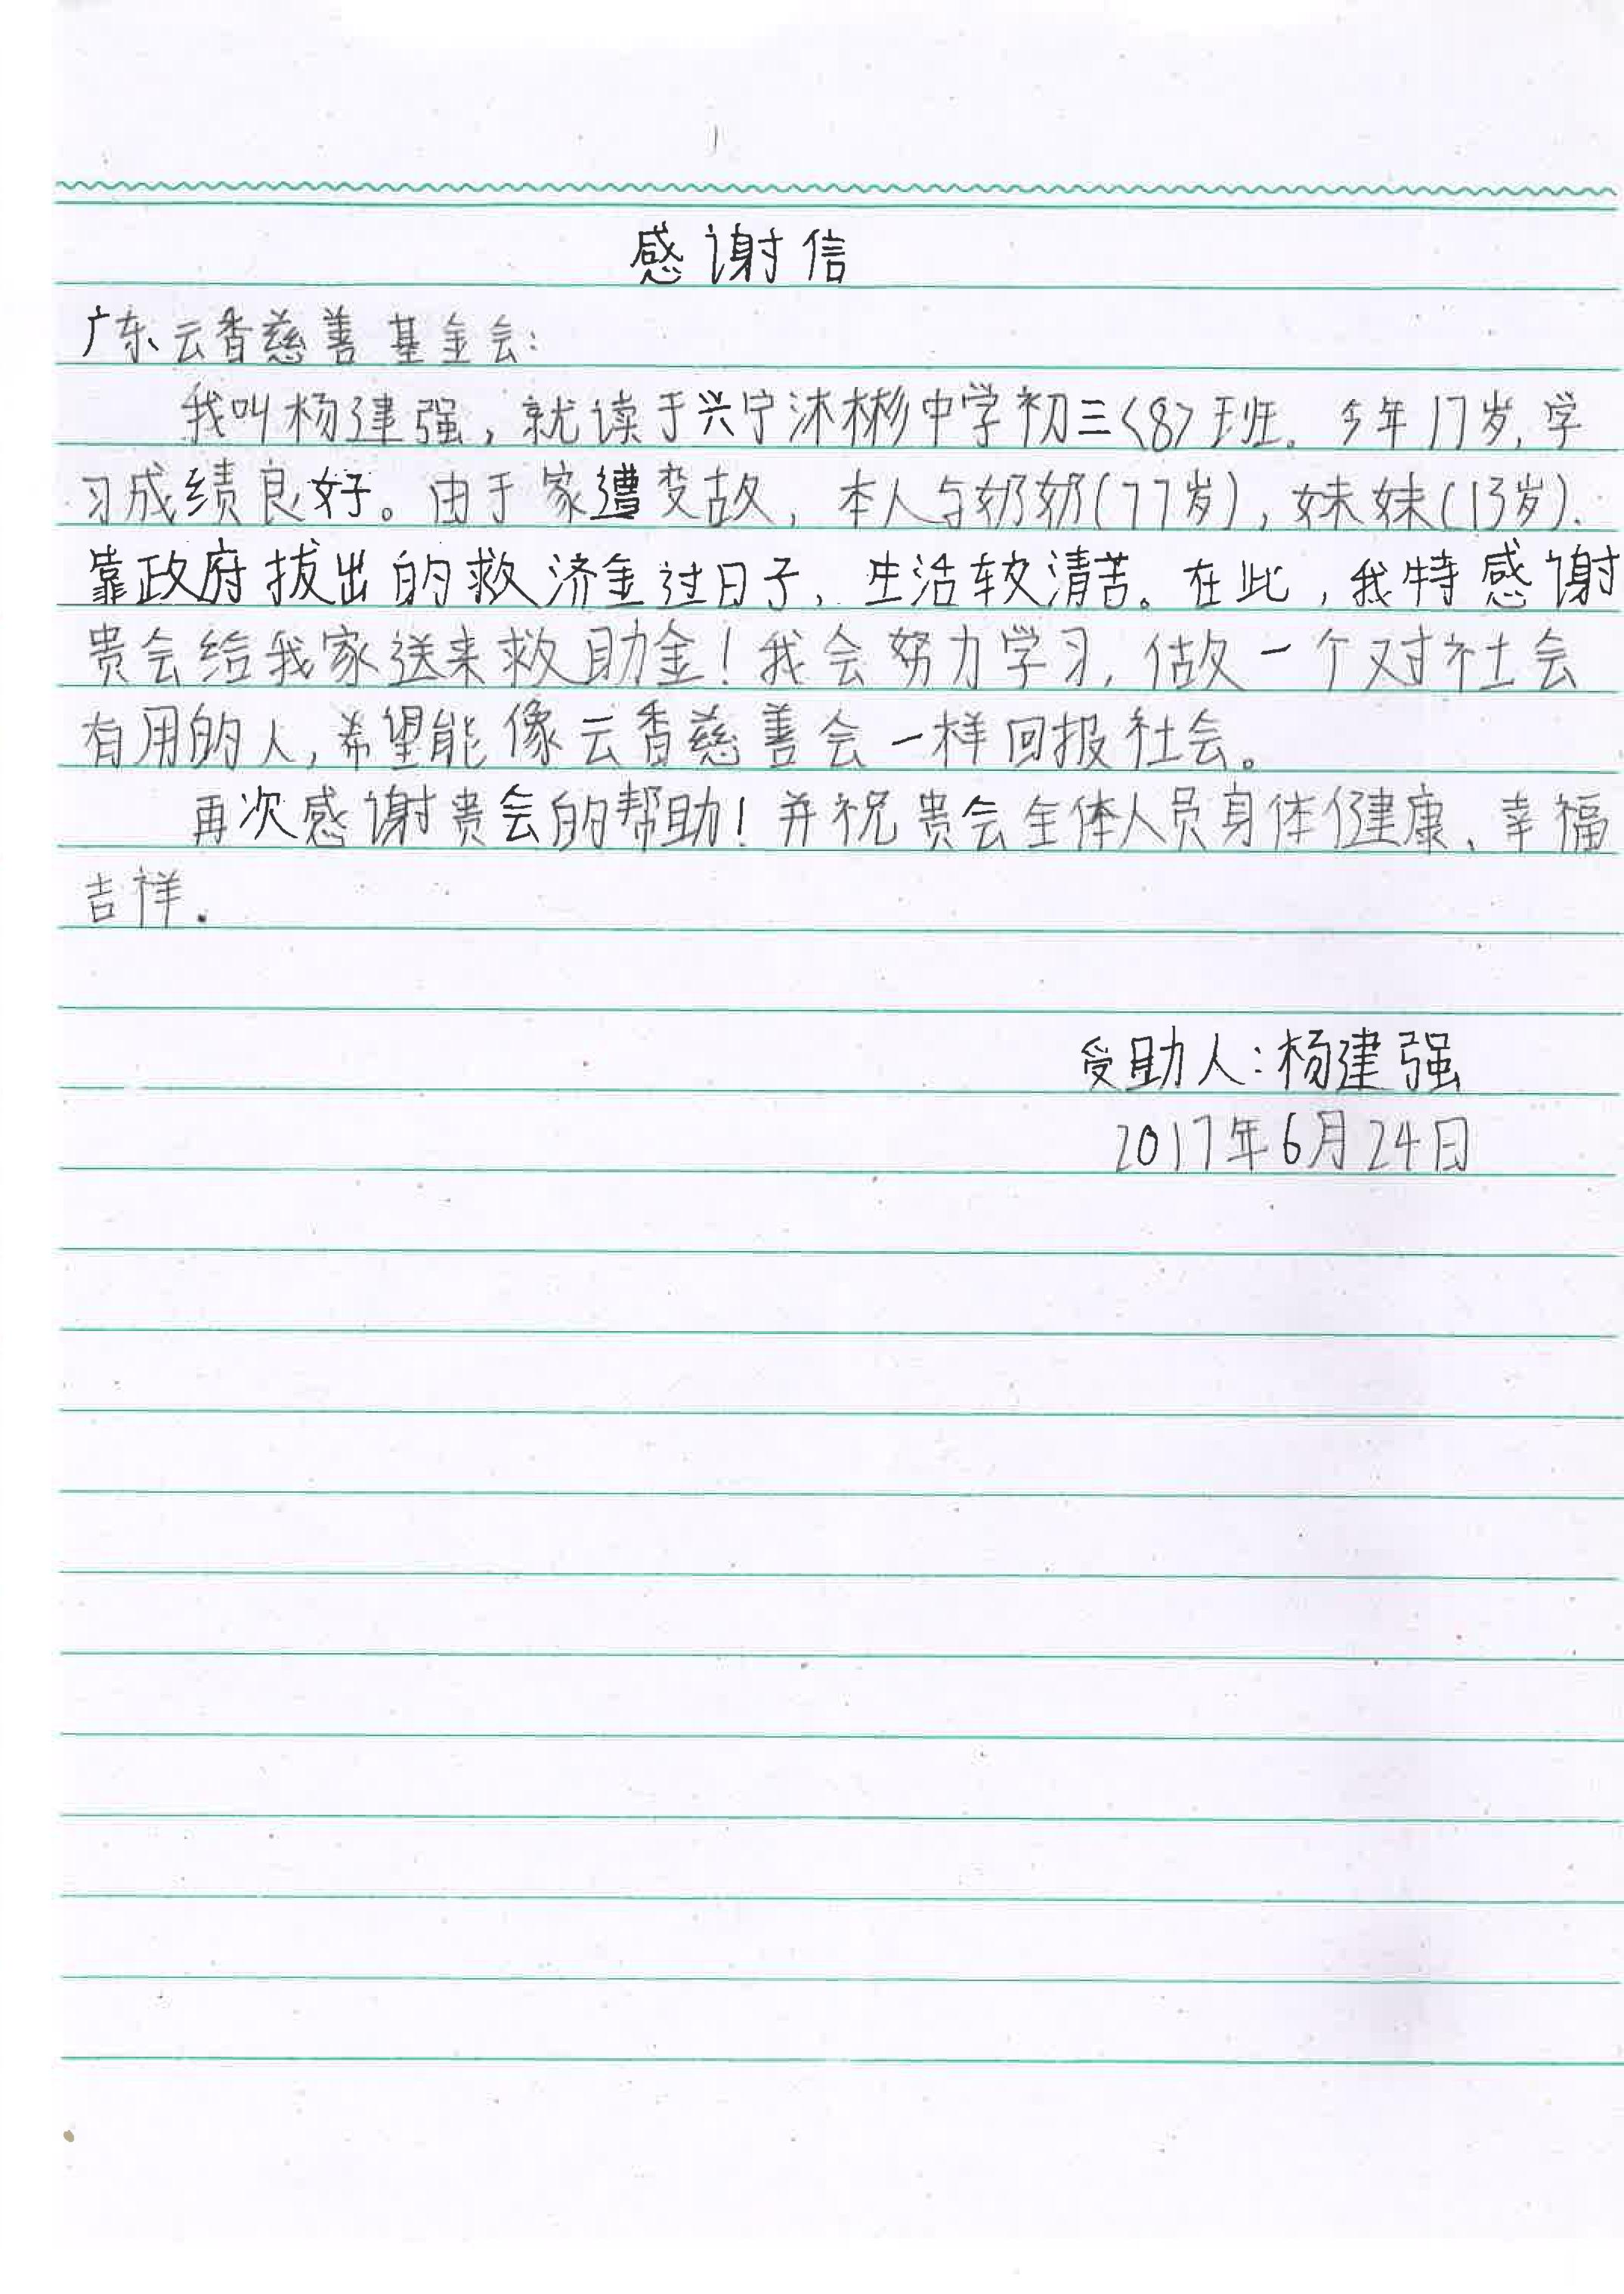 感谢信
广东云香慈善基金会:
我叫杨建强，就读于兴宁沐彬中学初三<8>班。今年17岁，学
习成绩良好。由于家遭变故，本人与奶奶(77岁)，妹妹(13岁).
靠政府拔出的救济金过日子，生活较清苦。在此，我特感谢
贵会给我家送来救助金！我会努力学习，做一个对社会
有用的人，希望能像云香慈善会一样回报社会。
再次感谢贵会的帮助！并祝贵会全体人员身体健康、幸福
吉祥.
受助人:杨建强
2017年6月24日